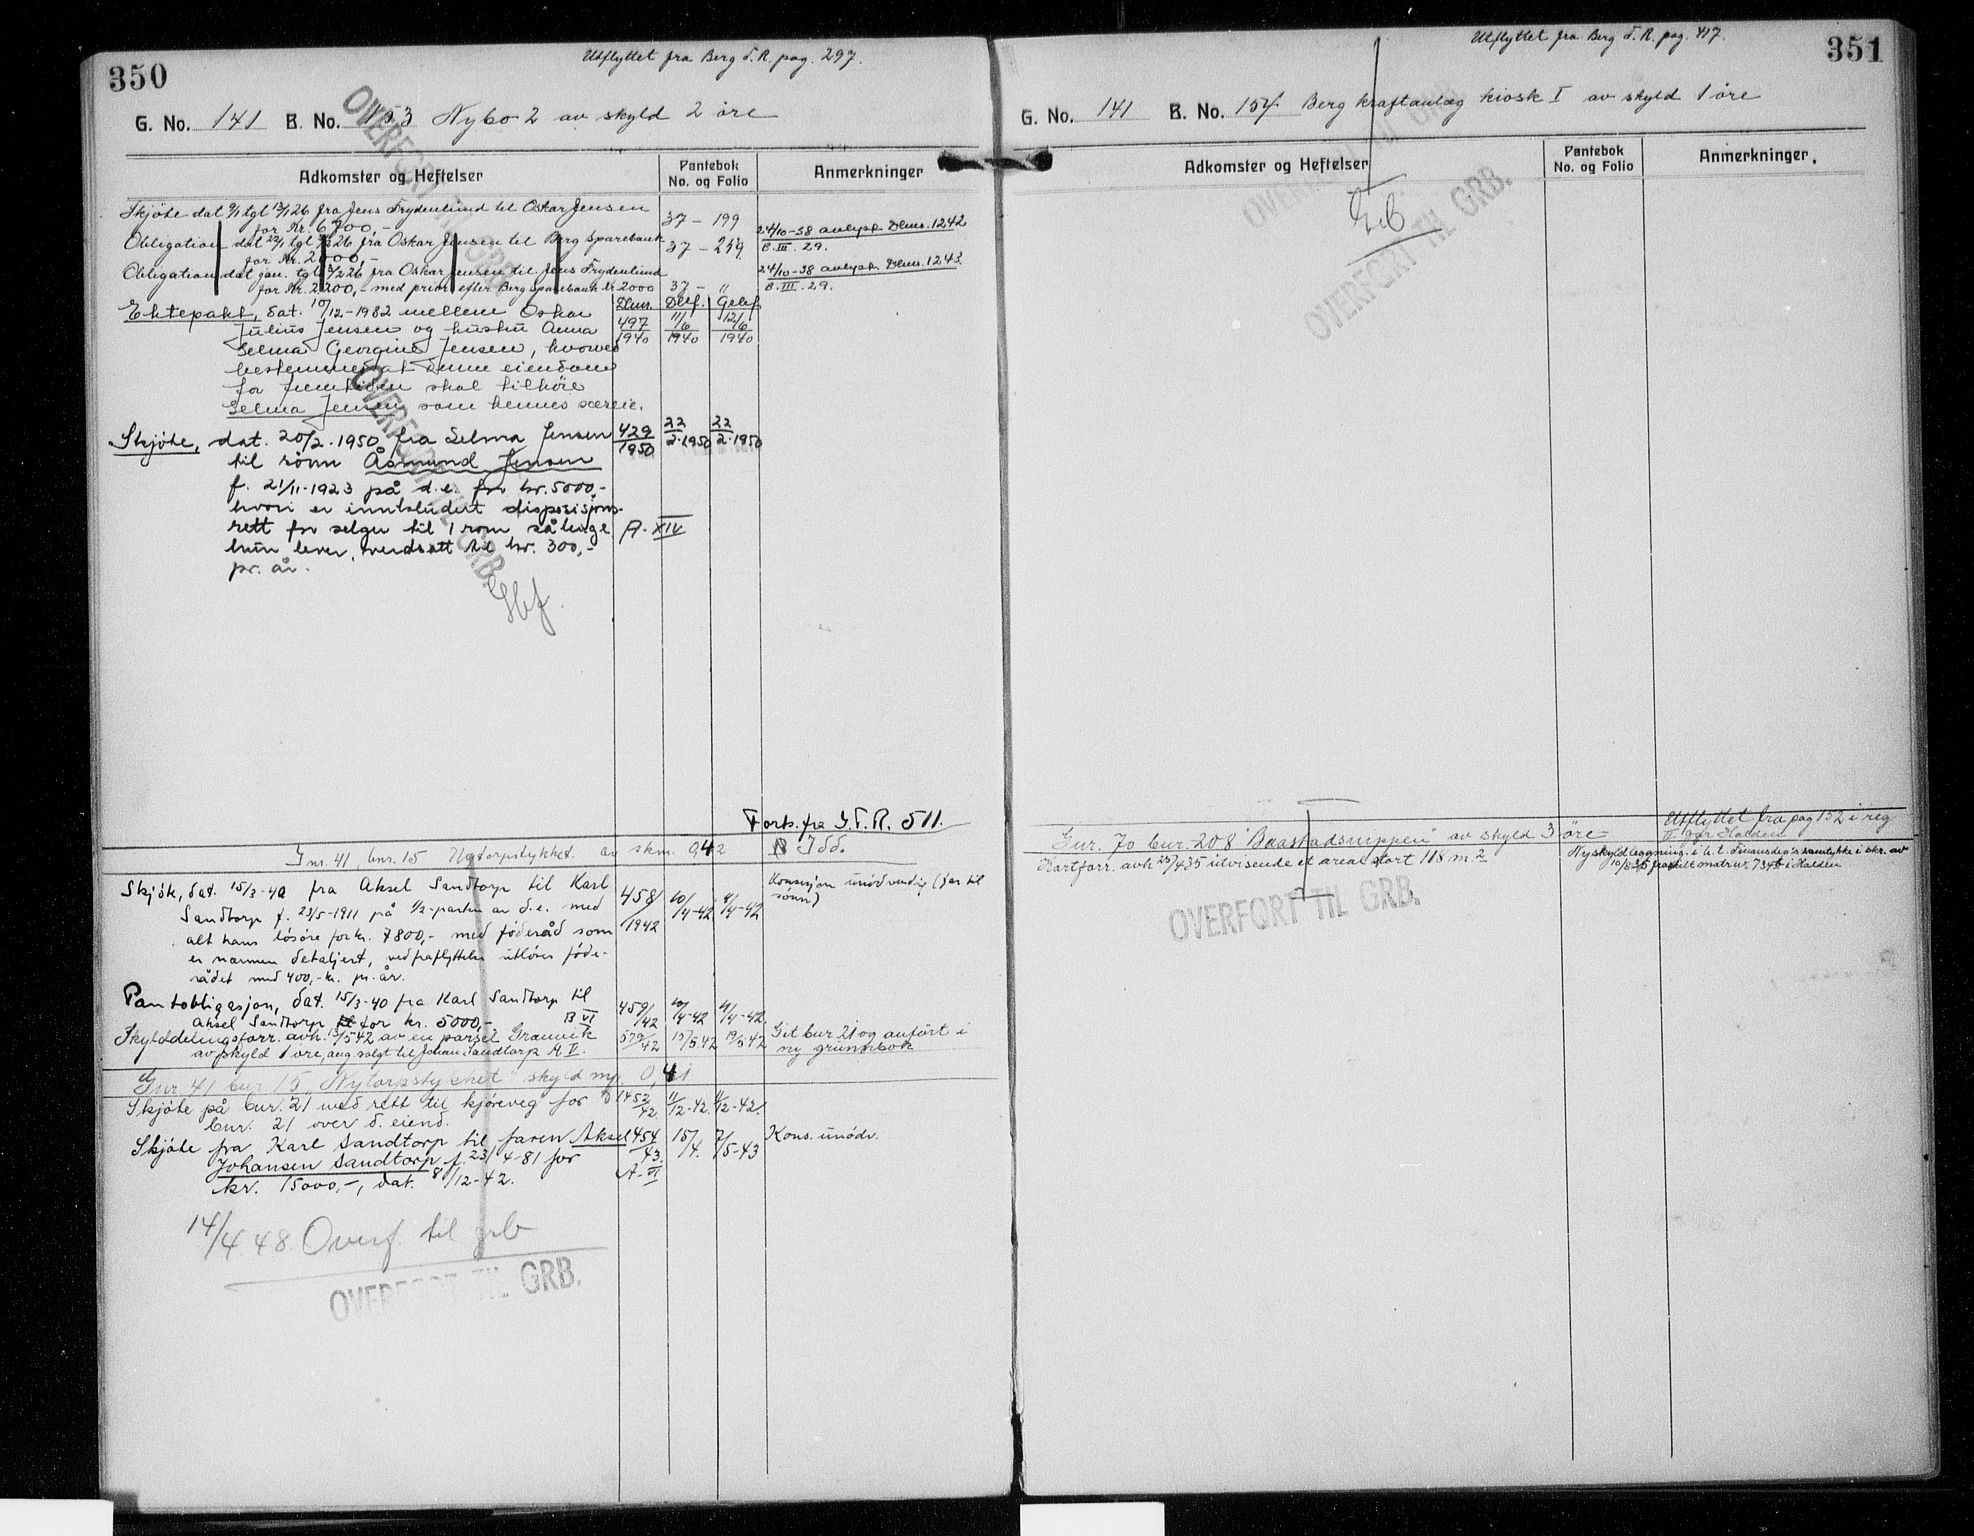 350
Utflyttet fra Berg d. R. pag. 297.
G. No. 141 B. No. 153 Nybo 2 av skyld 2 öre
Adkomster og Heftelser
Pantebok
No. og Folio
Anmerkninger
Skjöte dat 9/1 tgl 13/1 26 fra Jens Frydenlund til Oskar Jensen
for Kr. 6700,-
37 - 199
Obligation dat 22/1 tgl 3/2 26 fra Oskar Jensen til Berg Sparebank
for Kr. 2000,-
37 - 259
24/10-38 avlyst Dbnr. 1242
B. III. 29.
Obligation dat jan. tgl 3/2 26 fra Oskar Jensen til Jens Frydenlund
for Kr. 2200,- med prior. efter Berg Sparebank kr 2000
37 - "
24/10-38 avlyst Dbnr. 1243.
B. III. 29.
Ektepakt, dat. 10/12-1932 mellem Oskar
Julius Jensen og hustru Anna
Selma Georgine Jensen, hvorved
bestemmes at denne eiendom
for fremtiden skal tilhöre
Selma Jensen som hennes særeie.
Dbnr. 497 1940
11/6 1940
12/6 1940
Skjöte, dat. 20/2-1950 fra Selma Jensen
til sönn Åsmund Jensen
f. 21/11-1923 på d.e. for kr. 5000,-
hvori er innkludert disposisjons-
rett for selger til 1 rom så lenge
hun lever, verdsatt til kr. 300,-
pr. år.
429 1950
22 2.1950
22 2.1950
A. XIV
OVERFØRT TIL GRB.
OVERFØRT TIL GRB.
Forts. fra I.d.R. 511.
Gnr. 41, bnr. 15 Nytorpstykket. av skm. 0,42
Idd.
Skjöte, dat. 15/3-40 fra Aksel Sandtorp til Karl
Sandtorp f. 23/5-1911 på 1/2-parten av d.e. med
alt hans lösöre for kr. 7800,- med föderåd som
er nærmere detaljert, ved fraflyttelse utlöses föde-
rådet med 400,- kr. pr. år.
458/1942
10/4-42
11/4-42
Konsesjon unödvendig (far til
sönn)
Pantobligasjon, dat. 15/3-40 fra Karl Sandtorp til
Aksel Sandtorp for kr. 5000,- B VI
459/42
10/4-42
11/4-42.
Skylddelingsforr. avh. 13/5 42 av en parsel Granvik
av skyld 1 öre, ang solgt til Johan Sandtorp A V.
579/42
15/5.42
19/5-42
Git bnr 21 og anfört i
ny grunnbok
Gnr 41 bnr. 15 "Nytorpstykket" skyld mrk 0,41
Skjöte på bnr. 21 med rett til kjöreveg for
bnr. 21 over d. eiend.
1452/42
11/12-42.
11/12-42.
Skjöte fra Karl Sandtorp til faren Aksel
Johansen Sandtorp f. 23/4-81 for
kr. 15000,-, dat. 8/12-42.
454/43.
A-VI
15/4.
7/5-43
Kons. unödv.
14/4 48 Overf. til grb
OVERFØRT TIL GRB.
351
Utflyttet fra Berg d. R. pag. 417.
G. No. 141 B. No. 154 Berg kraftanlæg kiosk I av skyld 1 öre
Adkomster og Heftelser
Pantebok
No. og Folio
Anmerkninger.
Grb
OVERFØRT TIL GRB.
OVERFØRT TIL GRB.
Utflyttet fra pag 152 i reg
II for Halden
Gnr. 70 bnr. 208 "Baastadsnippen" av skyld 3 öre
Kartforr. avh 25/4 35 utvisende et areal stort 118 m.2
Nyskyldleggning i h. t. Finansdep's samtykke i skr. av
10/8 35 fraskilt matr. nr. 734b i Halden
OVERFØRT TIL GRB.